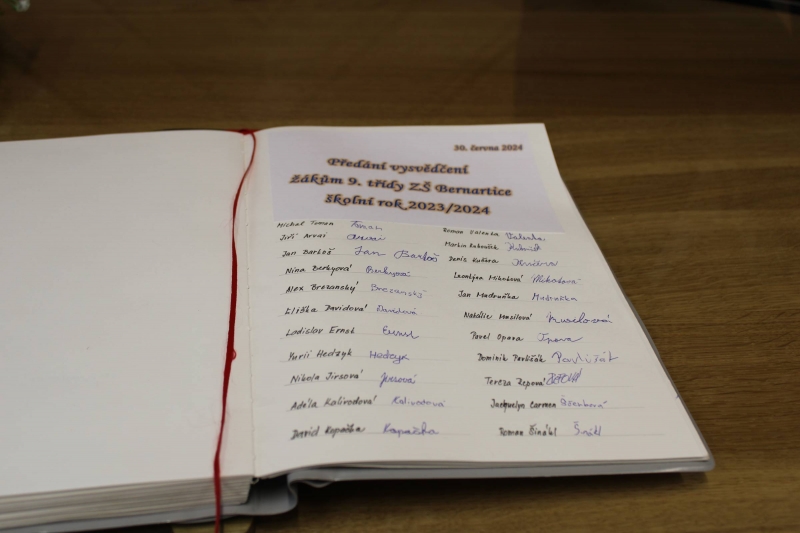 30. června 2024
Předání vysvědčení
žákům 9. třídy ZŠ Bernartice
školní rok 2023/2024
Michal Toman Toman
Jiří Arvai Arvai
Jan Bartoš Jan Bartoš
Nina Berkyová Berkyová
Alex Brezanský Brezanský
Eliška Davidová Davidová
Ladislav Ernst Ernst
Yurii Hedzyk Hedzyk
Nikola Jirsová Jirsová
Adéla Kalivodová Kalivodová
David Kopačka Kopačka
Roman Valenta Valenta
Martin
Denis Kučera Kučera
Leontýna Mikotová
Jan Madruňka Madruňka
Natálie Musilová
Pavel Opava Opava
Dominik Pavližák Pavližák
Tereza Řepová
Jacquelyn Carmen
Roman Šindl